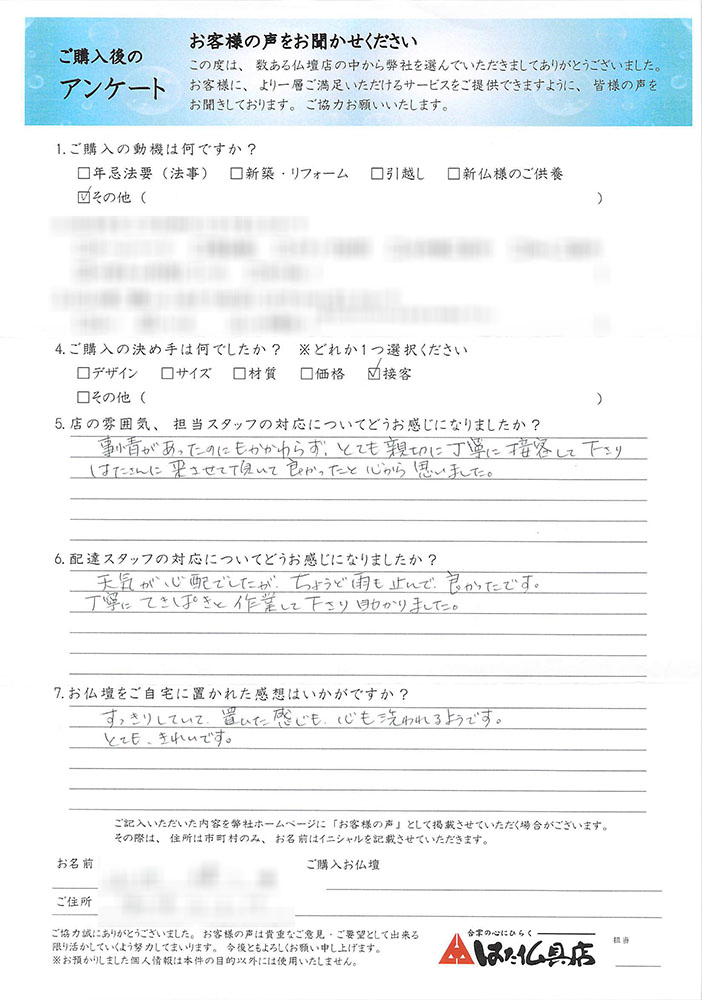 ご購入後の
アンケート
お客様の声をお聞かせください
この度は、数ある仏壇店の中から弊社を選んでいただきましてありがとうございました。
お客様に、より一層ご満足いただけるサービスをご提供できますように、皆様の声を
お聞きしております。ご協力お願いいたします。
1.ご購入の動機は何ですか？
□年忌法要（法事） □新築・リフォーム □引越し □新仏様のご供養
☑その他（ ）
4.ご購入の決め手は何でしたか？ ※どれか1つ選択ください
□デザイン □サイズ □材質 □価格 ☑接客
□その他（ ）
5.店の雰囲気、担当スタッフの対応についてどうお感じになりましたか？
事情があったのにもかかわらず、とても親切に丁寧に接客して下さり
はたさんに来させて頂いて良かったと心から思いました。
6.配達スタッフの対応についてどうお感じになりましたか？
天気が心配でしたが、ちょうど雨も止んで、良かったです。
丁寧にてきぱきと作業して下さり助かりました。
7.お仏壇をご自宅に置かれた感想はいかがですか？
すっきりしていて、置いた感じも、心も洗われるようです。
とても、きれいです。
ご記入いただいた内容を弊社ホームページに「お客様の声」として掲載させていただく場合がございます。
その際は、住所は市町村のみ、お名前はイニシャルを記載させていただきます。
お名前 ご購入お仏壇
ご住所
ご協力誠にありがとうございました。お客様の声は貴重なご意見・ご要望として出来る
限り活かしていくよう努力してまいります。今後ともよろしくお願い申し上げます。
※お預かりしました個人情報は本件の目的以外には使用いたしません。
合掌の心にひらく
はた仏具店
担当